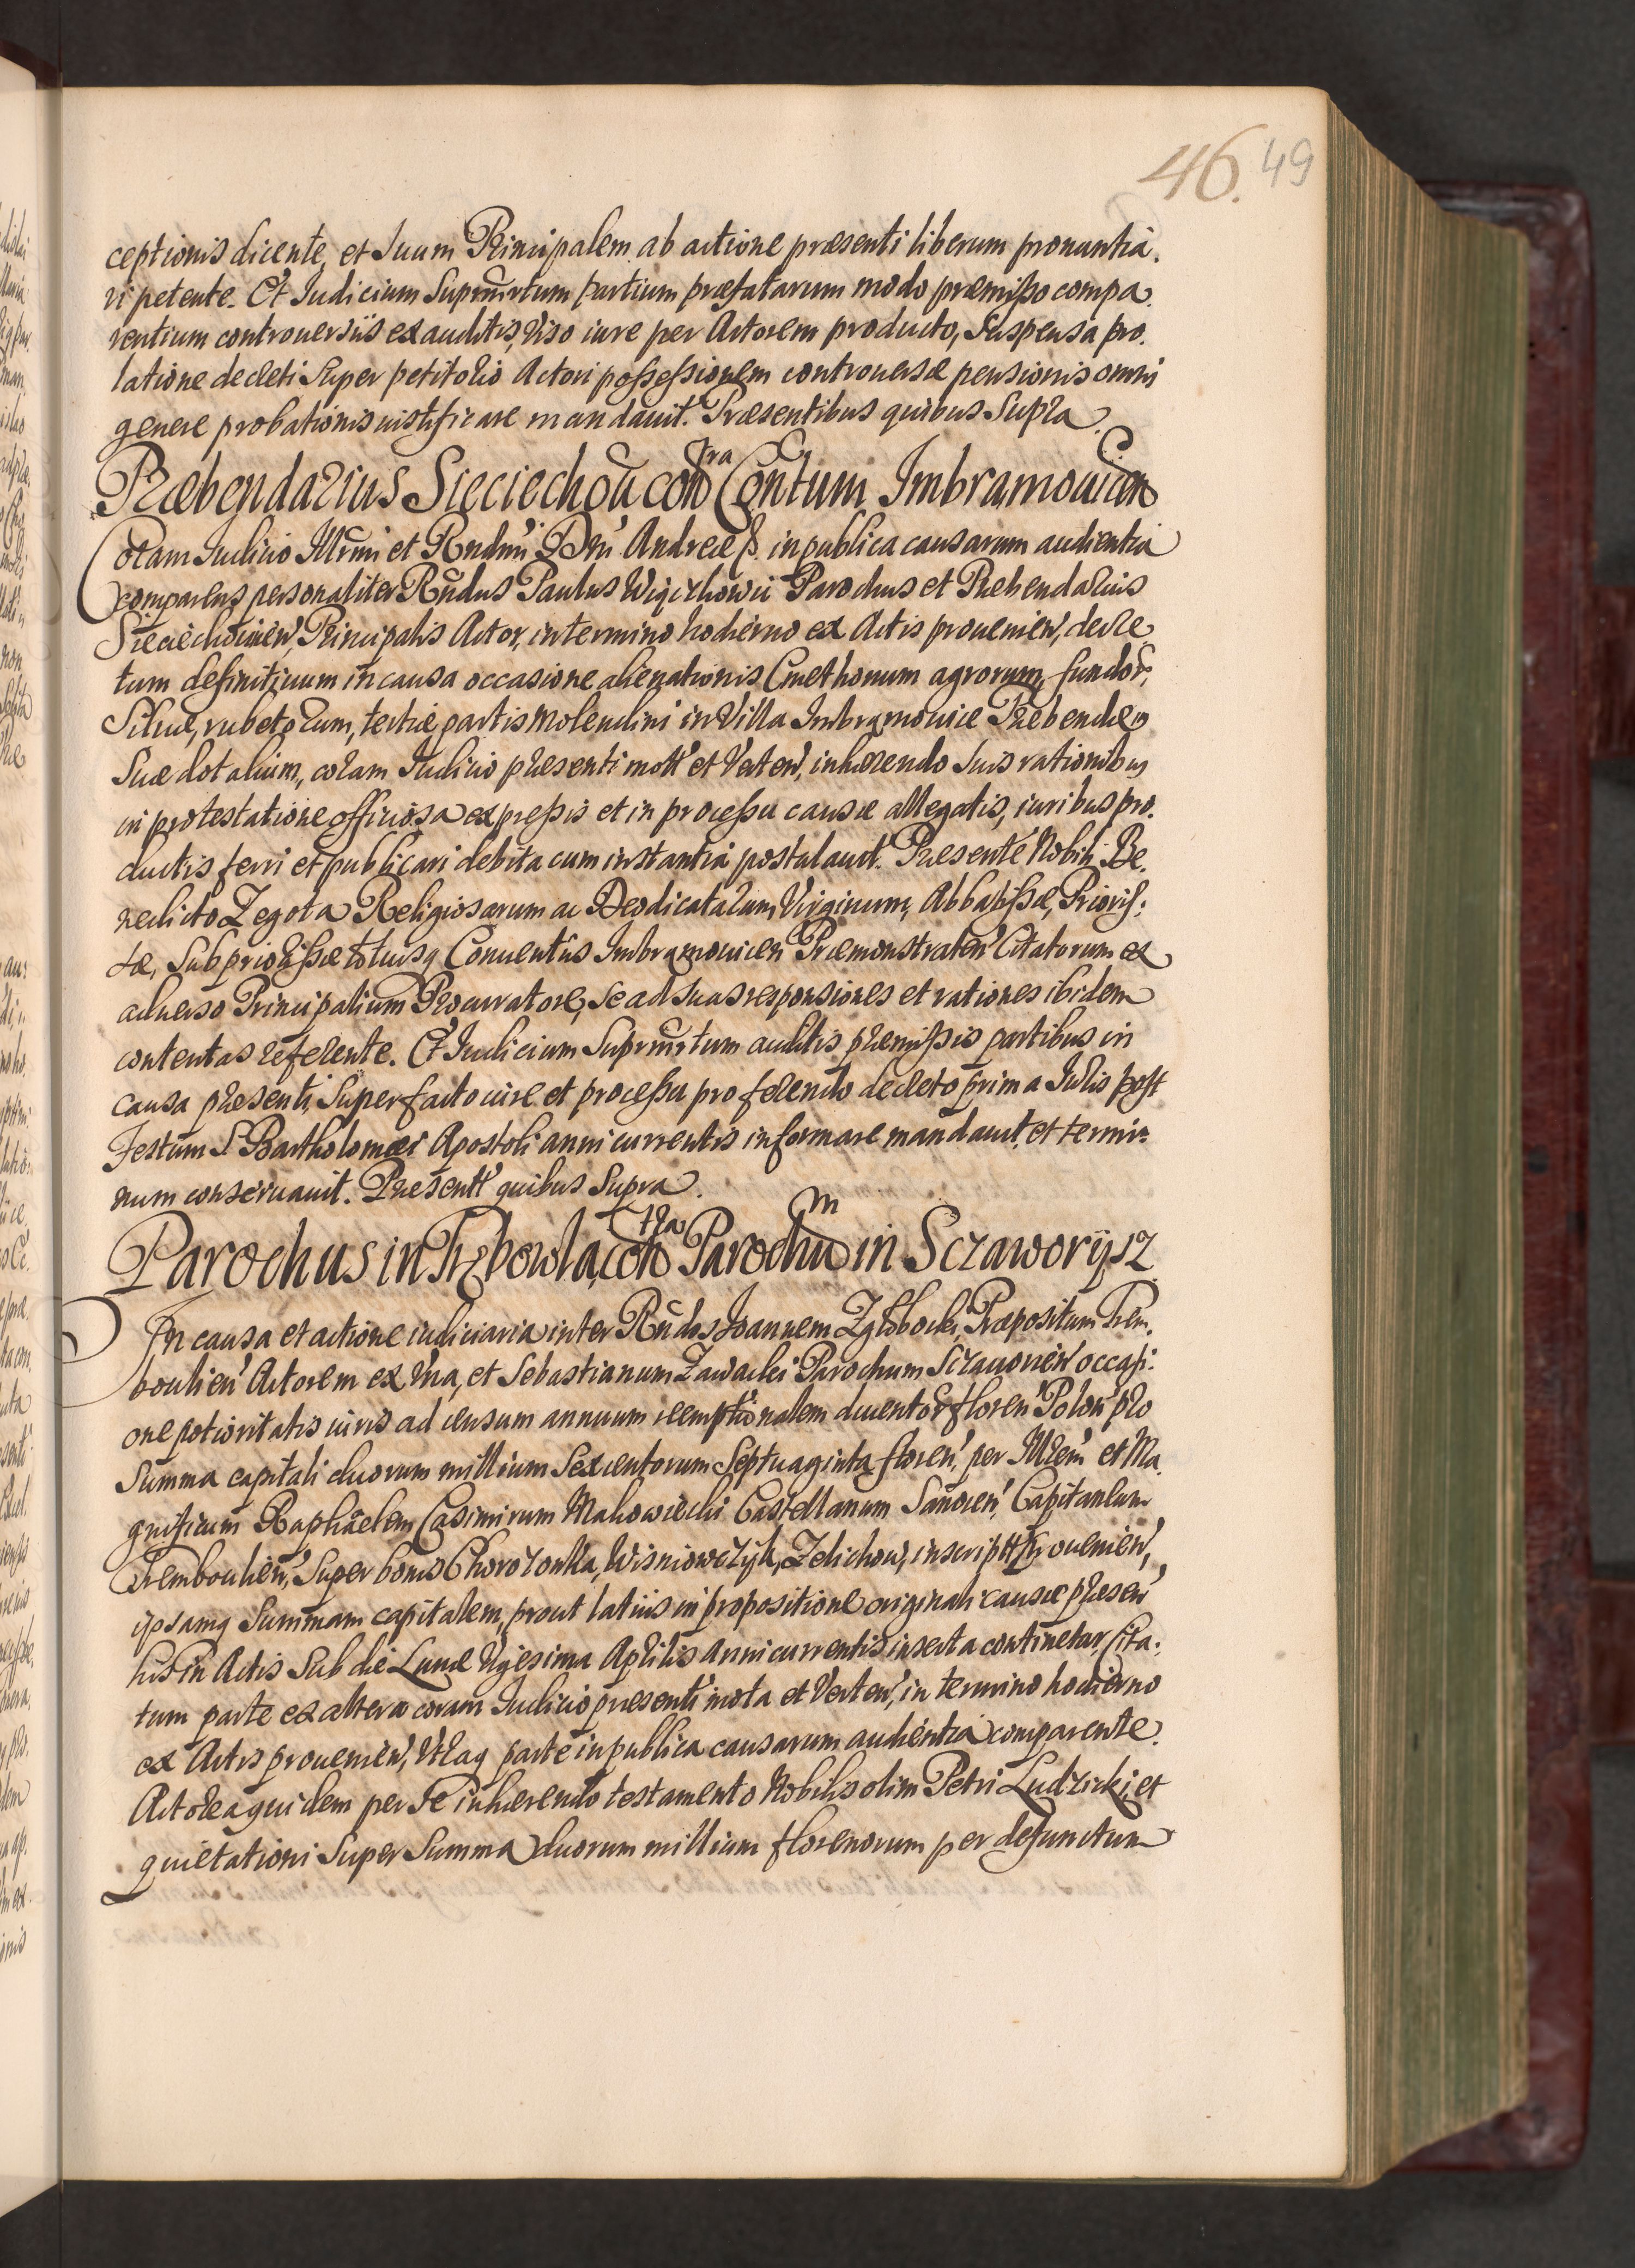 46. 49
ceptionis dicente, et Suum Principalem ab actione præsenti liberum pronuntia.
ri petente. Et Iudicium Suprascrtum partium præfatarum modo præmisso compa.
rentium controuersiis exauditis, Viso iure per Actorem producto, Suspensa pro.
latione decreti Super petitorio Actori possessionem controuersæ pensionis omni
genere probationis iustificare mandauit. Præsentibus quibus Supra.
Præbendarius Sieciechou contra Contum Imbramouicen
Coram Iudicio Illrmi et Rndmi Dni Andreæ ss. in publica causarum audientia
comparens personaliter Rndus Paulus Parochus et Præbendarius
Sieciechouien, Principalis Actor, in termino hodierno ex Actis prouenien, decre
tum definitiuum in causa occasione alienationis Cmethonum agrorum, fundor,
Siluæ, rubetorum, tertiæ partis molendini in Villa Imbramouice Præbendæ
Suæ dotalium, coram Iudicio præsenti mott et Verten, inhærendo Suis rationibus
in protestatione officiosa expressis et in processu causæ allegatis, iuribus pro.
ductis ferri et publicari debita cum instantia postulauit. Præsente Nobili Be.
nedicto Zegota Religiosarum ac Deodicatarum Virginum, Abbatissæ, Prioris.
sæ, Subpriorissæ totiusq Conuentus Imbramouicen Præmonstraten Citatorum ex
aduerso Principalium Procuratore, Se ad Suas responsiones et rationes ibidem
contentas referente. Et Iudicium Suprascrtum auditis præmissis partibus in
causa præsenti, Super facto iure et processu pro ferendo decreto prima Iuris post
Festum S Bartholomæi Apostoli anni currentis informare mandauit, et termi=
num conseruauit. Præsentt quibus Supra.
Parochus in Trębowla, contra Parochum in Sczaworÿsz
In causa et actione iudiciaria inter Rndos Ioannem Zglobocki, Præpositum Trem.
boulien Actorem ex Vna, et Sebastianum Zawacki Parochum occasi.
one potioritatis iuris ad censum annuum reemptionalem ducentor floren Polon, pro
Summa capitali duorum millium Sexcentorum Septuaginta floren, per Illrem et Ma.
gnificum Raphaelem Casimirum Makowiecki Castellanum Capitaneum
Tremboulien, Super bonis Chorozonka, Wisniowczyk, Zelichow, inscriptt prouenien,
ipsamq Summam capitalem, prout latius in propositione originali causæ præsen
his in Actis Sub die Lunæ Vigesima Aprilis Anni currentis inserta continetur, Cita.
tum parte ex altera coram Iudicio præsenti mota et Verten, in termino hodierno
ex Actis prouenien, Vtraq parte in publica causarum audientia comparente.
Actorea quidem per Se inhærendo testamento Nobilis olim Petri Ludzicki, et
quietationi Super Summa duorum millium florenorum per defunctum